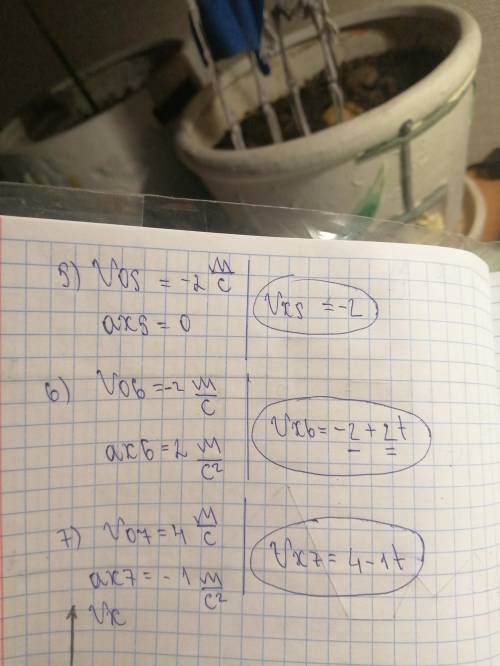 5) V05 = -2 м/с
ax5 = 0
Vx5 = -2
6) V06 = -2 м/с
ax6 = 2 м/с²
Vx6 = -2 + 2t
7) V07 = 4 м/с
ax7 = -1 м/с²
Vx7 = 4 - 1t
Vx